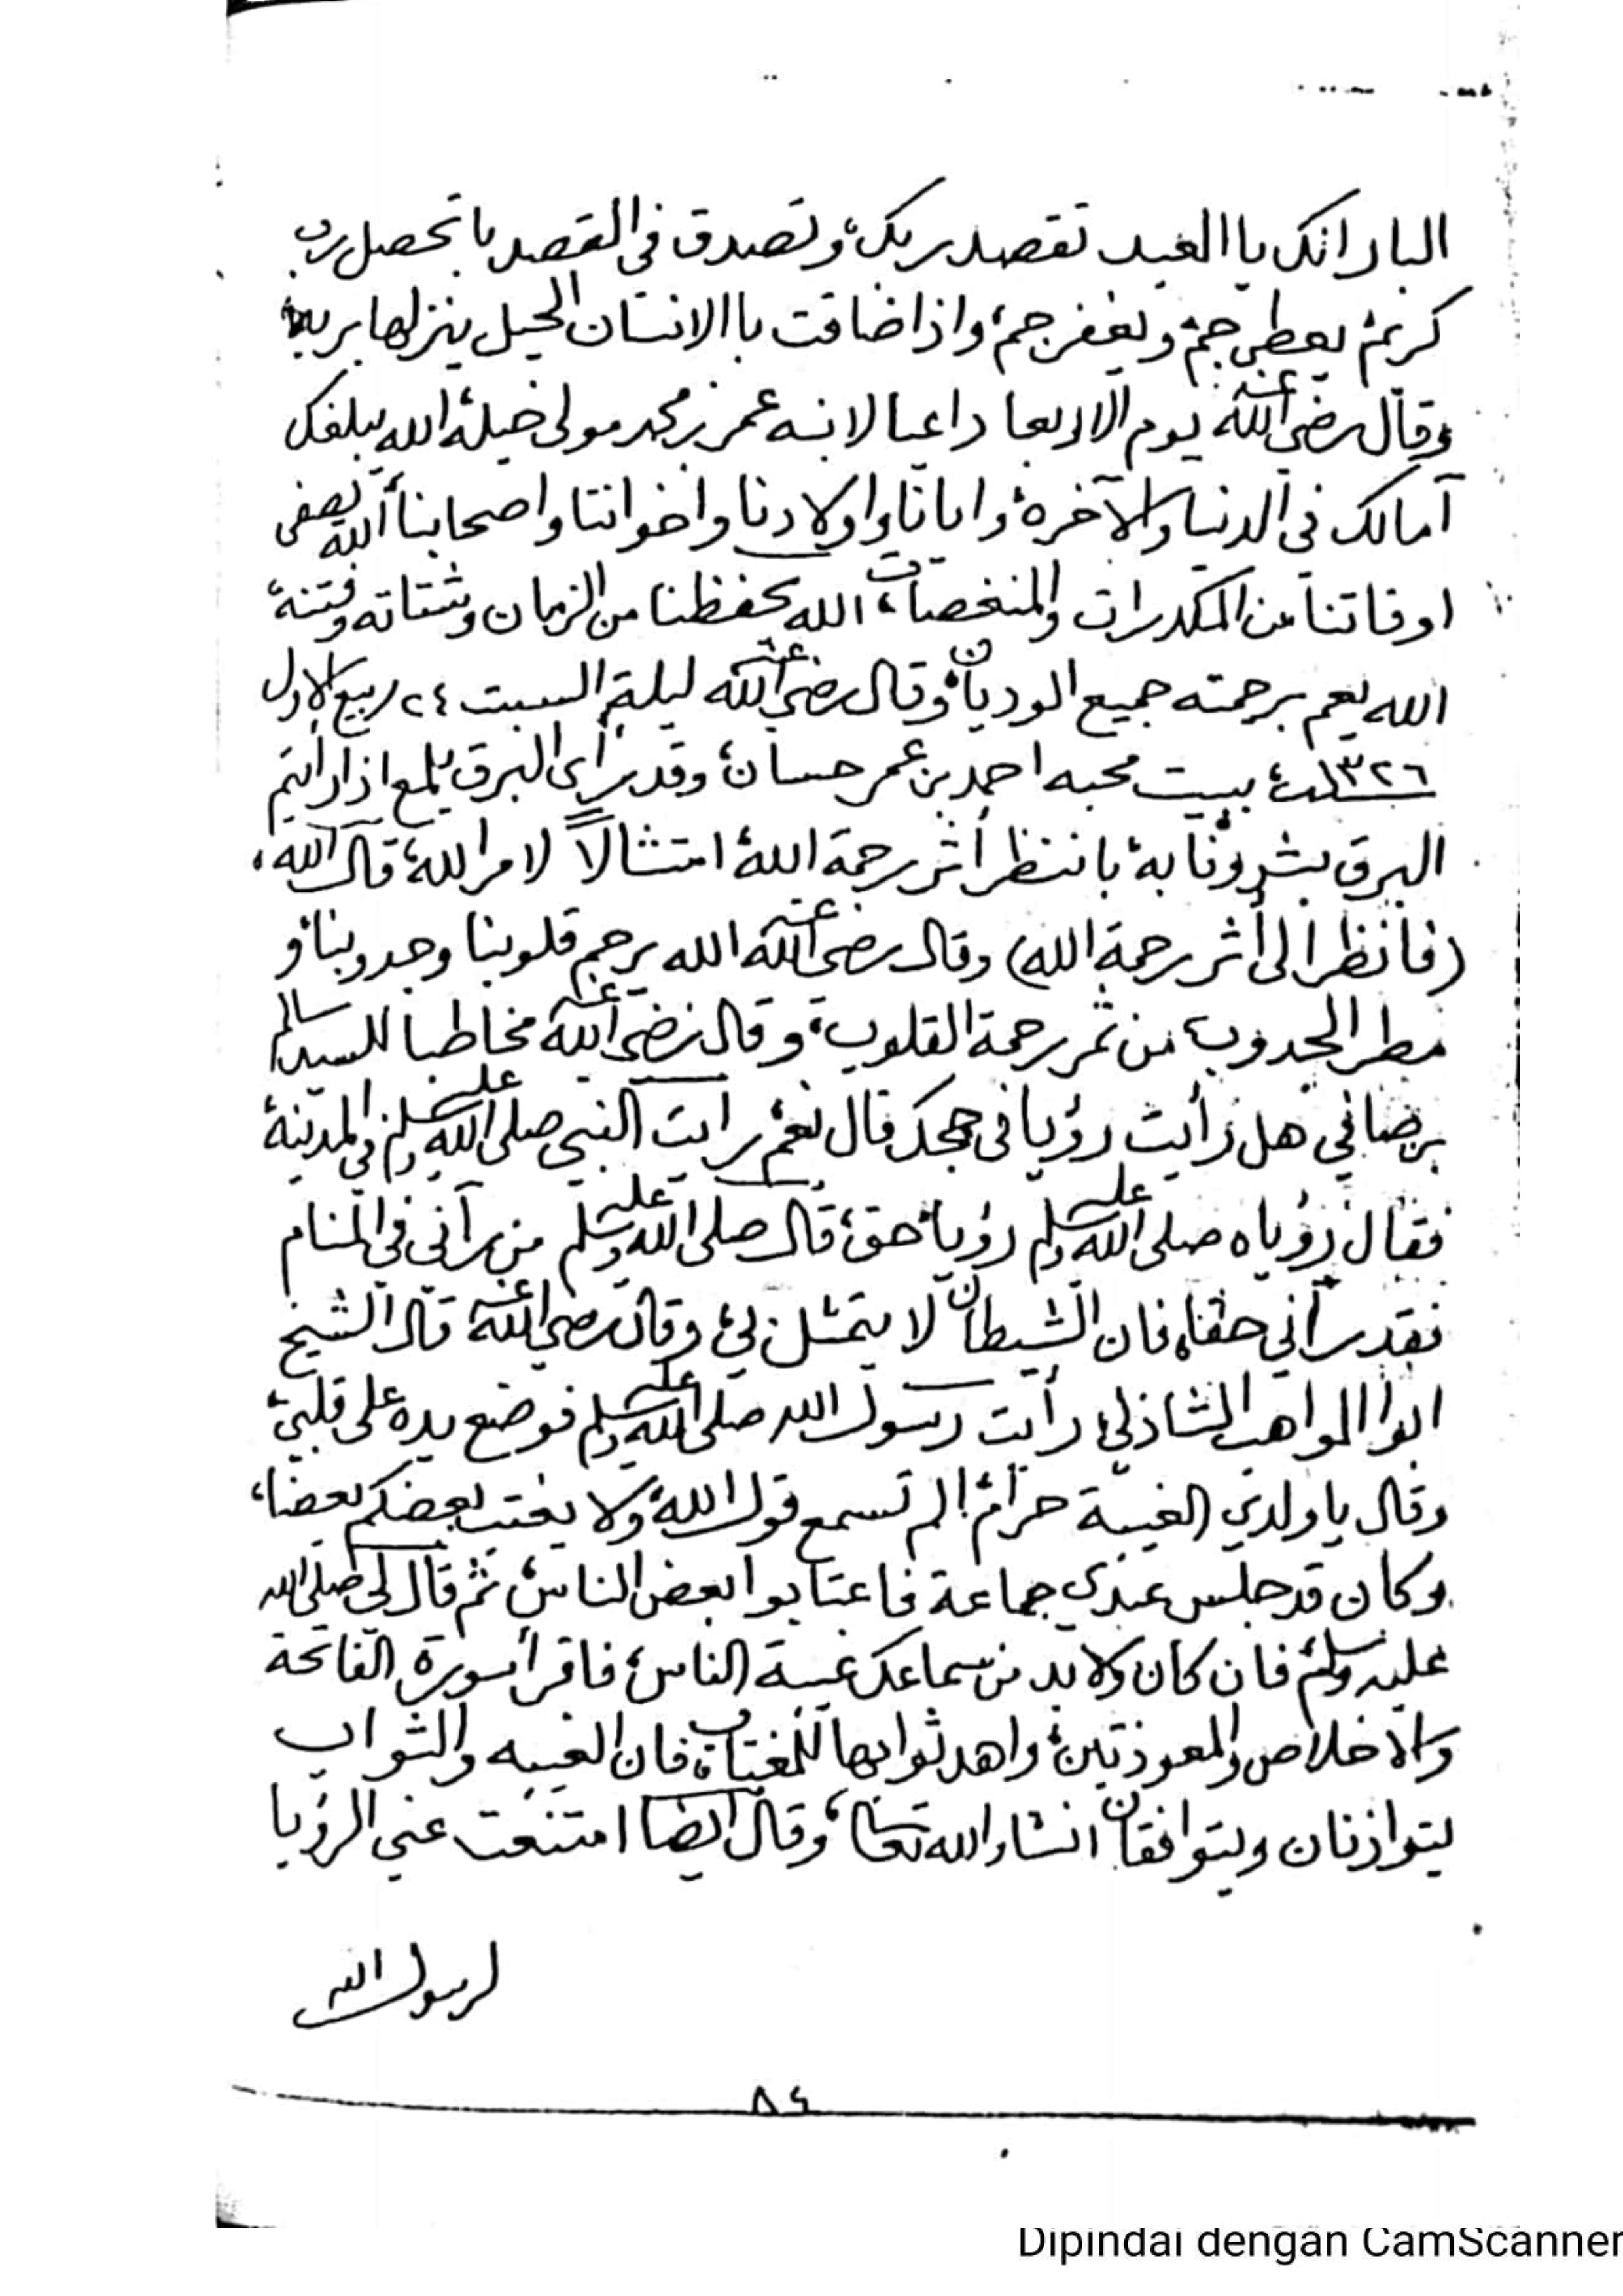 البار انك يا العبد تقصد ربك، وتصدق في القصد با تحصل رب
كريم يعطي جم ويغفر جم، واذا ضاقت با الانسان الحيل ينزلها بربه
وقال رضي الله عنه يوم الاربعا داعيا لابنه عمر بن محمد مولى خيلة، الله يبلغك
آمالك في الدنيا والآخرة، وايانا واولادنا واخواننا واصحابنا، الله يصفي
اوقاتنا من المكدرات والمنغصات، الله يحفظنا من الزمان وشتاته وفتنه،
الله يعم برحمته جميع الوديان، وقال رضي الله عنه ليلة السبت ٢٤ ربيع الاول
١٣٢٦ بيت محبه احمد بن عمر حسان، وقد رأى البرق يلمع اذا رأيتم
البرق بشرونا به، با ننظر أثر رحمة الله، امتثالاً لامر الله، قال الله،
(فانظر الى أثر رحمة الله) وقال رضي الله عنه الله يرحم قلوبنا وجدوبنا، و
مطر الجدوب، من ثمر رحمة القلوب، وقال رضي الله عنه مخاطبا للسيد سالم
بن صافي هل رأيت رؤيا في حجك قال نعم، رايت النبي صلى الله عليه وسلم في المدينة،
فقال رؤياه صلى الله عليه وسلم رؤيا حق، قال صلى الله عليه وسلم من رآني في المنام
فقد رآني حقا، فان الشيطان لا يتمثل بي، وقال رضي الله عنه قال الشيخ
ابوا المواهب الشاذلي، رأيت رسول الله صلى الله عليه وسلم فوضع يده على قلبي،
وقال يا ولدي الغيبة حرام، الم تسمع قول الله، ولا يغتب بعضكم بعضا،
وكان قد جلس عندي جماعة فاغتابوا بعض الناس، ثم قال لي صلى الله
عليه وسلم، فان كان ولا بد من سماعك غيبة الناس، فاقرأ سورة الفاتحة
والاخلاص والمعوذتين، واهد ثوابها للمغتاب، فان الغيبه والثواب
يتوازنان ويتوافقان انشاء الله تعالى، وقال ايضا امتنعت عني الرؤيا
لرسول الله
٨٤
Dipindai dengan CamScanner